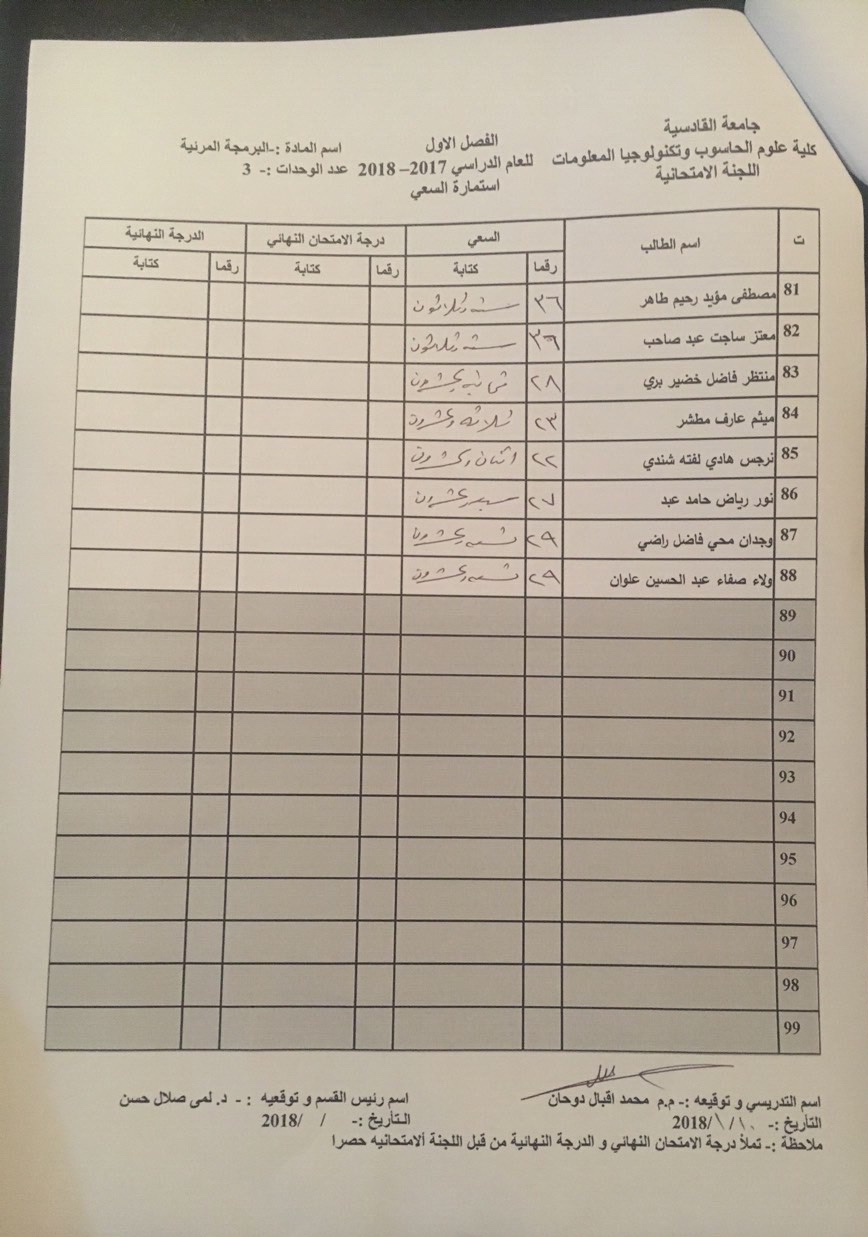 جامعة القادسية
كلية علوم الحاسوب وتكنولوجيا المعلومات
اللجنة الامتحانية
الفصل الاول
للعام الدراسي 2017– 2018
استمارة السعي
اسم المادة :-البرمجة المرئية
عدد الوحدات :- 3
ت اسم الطالب السعي درجة الامتحان النهائي الدرجة النهائية
رقما كتابة رقما كتابة رقما كتابة
81 مصطفى مؤيد رحيم طاهر ٣٦ سته وثلاثون
82 معتز ساجت عبد صاحب ٣٦ سته وثلاثون
83 منتظر فاضل خضير بري ٢٨ ثمانيه وعشرون
84 ميثم عارف مطشر ٢٣ ثلاثه وعشرون
85 نرجس هادي لفته شندي ٢٢ اثنان وعشرون
86 نور رياض حامد عبد ٢٧ سبعه وعشرون
87 وجدان محي فاضل راضي ٢٩ تسعه وعشرون
88 ولاء صفاء عبد الحسين علوان ٢٩ تسعه وعشرون
89
90
91
92
93
94
95
96
97
98
99
اسم التدريسي و توقيعه :- م.م محمد اقبال دوحان
التأريخ :- ١٠ / ١ /2018
اسم رئيس القسم و توقعيه : - د. لمى صلال حسن
التأريخ :- / /2018
ملاحظة :- تملأ درجة الامتحان النهائي و الدرجة النهائية من قبل اللجنة ألامتحانيه حصرا